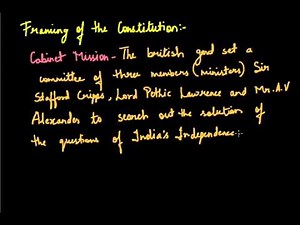 Framing of the Constitution:-
Cabinet Mission - The british govt set a
committee of three members (ministers) Sir
Stafford Cripps, Lord Pethic Lawrence and Mr. A.V
Alexander to search out the solution of
the questions of India's Independence: